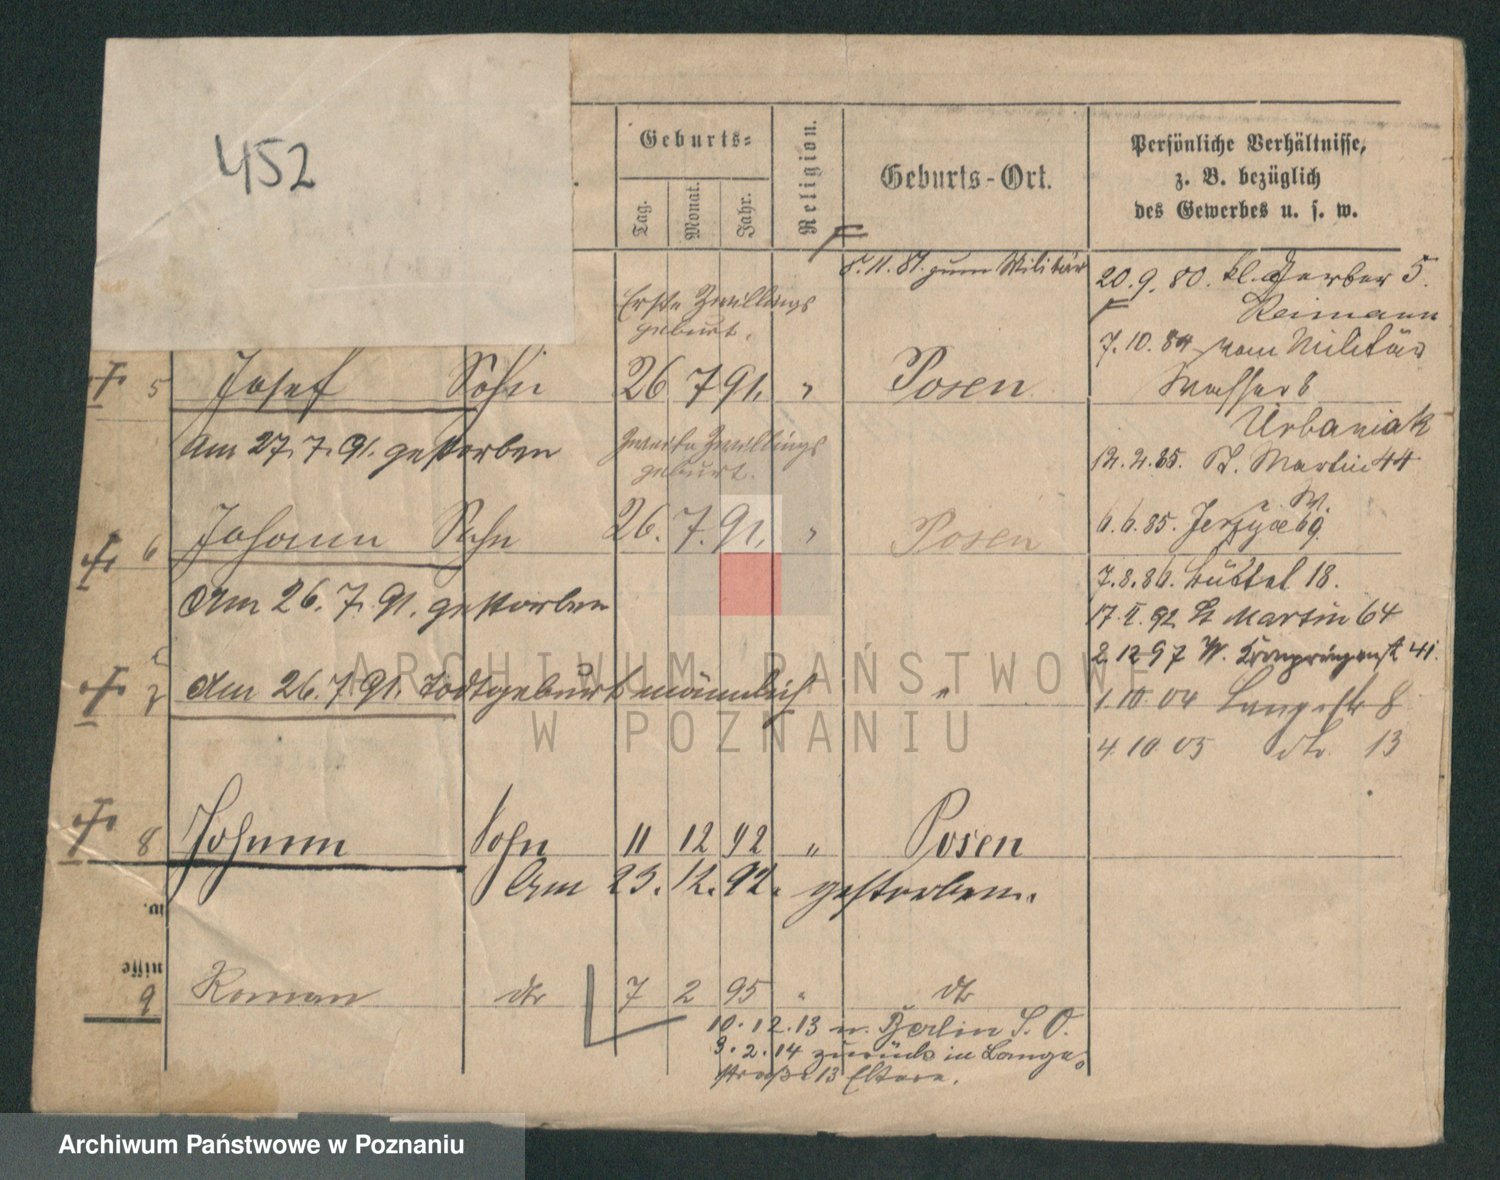 452
Geburts-
Tag.
Monat.
Jahr.
Religion.
Geburts-Ort.
Persönliche Verhältnisse,
z. B. bezüglich
des Gewerbes u. s. w.
5.11.81. zum Militär
20.9.80. kl. Gerber 5.
Reimann
7.10.84 vom Militär
Wasserb
Urbaniak
12.2.85. St. Martin 44
6.6.85. Jerzyce 69.
7.8.86. Büttel 18.
17.II.92 St Martin 64
2.12.97 W. Kronprinzenst 41.
1.10.04 Langestr 8
4.10.05 do 13
Erste Zwillings
geburt.
5 Josef Sohn 26 7 91. " Posen
Am 27.7.91. gestorben
Zweite Zwillings
geburt.
6 Johann Sohn 26. 7. 91. " Posen
Am 26.7.91. gestorben
7 Am 26.7.91. Todtgeburt männlich "
8 Johann Sohn 11 12 92 " Posen
Am 23.12.92. gestorben.
w.
nisse
9 Roman do 7 2 95 " do
10.12.13 n. Berlin S.O.
3.2.14 zurück in Lange
straße 13 Eltern.
ARCHIWUM PAŃSTWOWE
W POZNANIU
Archiwum Państwowe w Poznaniu